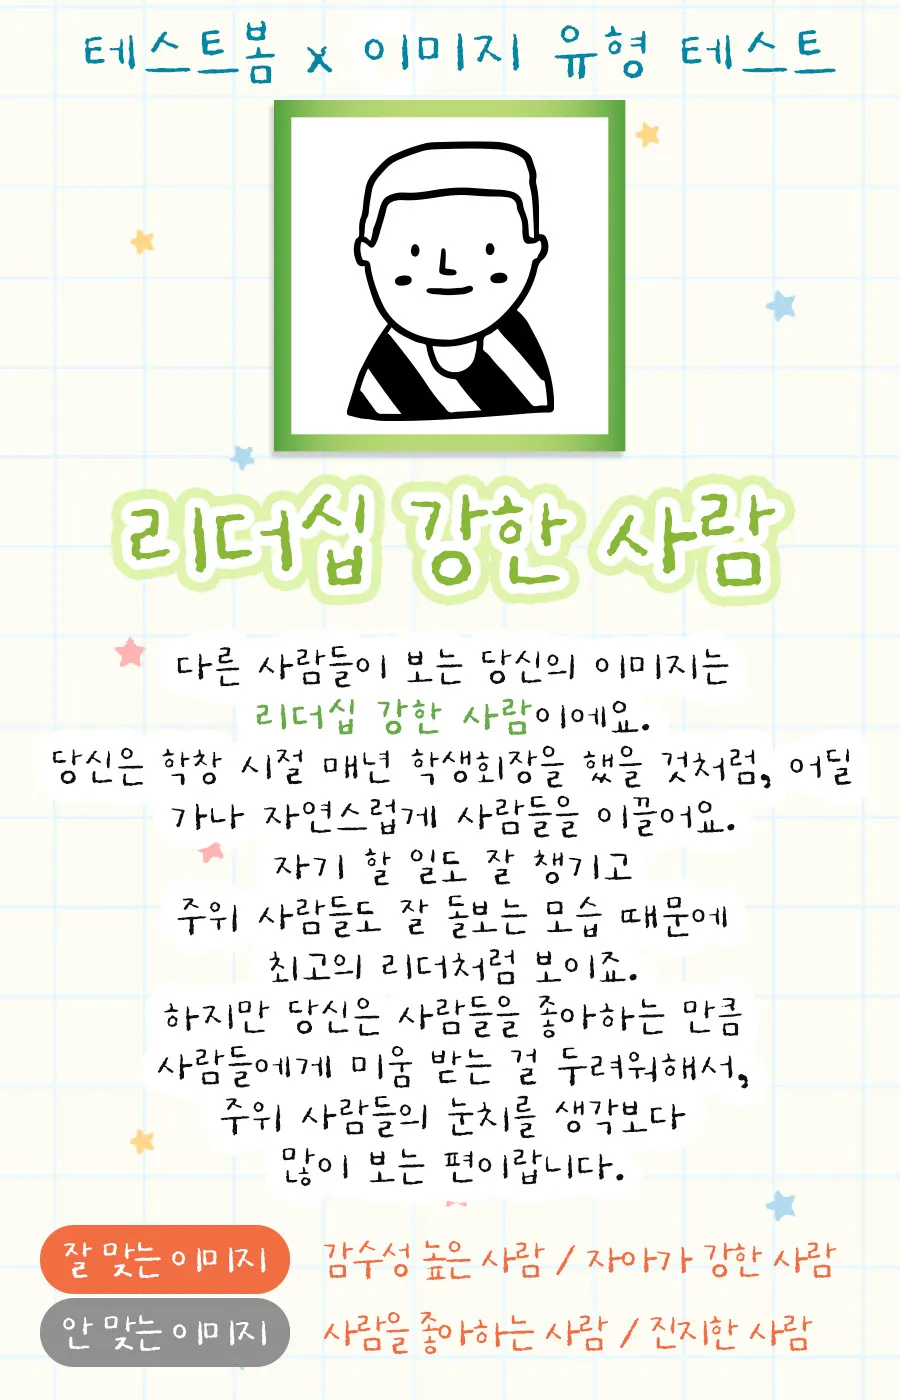 테스트봄 x 이미지 유형 테스트
리더십 강한 사람
다른 사람들이 보는 당신의 이미지는
리더십 강한 사람이에요.
당신은 학창 시절 매년 학생회장을 했을 것처럼, 어딜
가나 자연스럽게 사람들을 이끌어요.
자기 할 일도 잘 챙기고
주위 사람들도 잘 돌보는 모습 때문에
최고의 리더처럼 보이죠.
하지만 당신은 사람들을 좋아하는 만큼
사람들에게 미움 받는 걸 두려워해서,
주위 사람들의 눈치를 생각보다
많이 보는 편이랍니다.
잘 맞는 이미지 감수성 높은 사람 / 자아가 강한 사람
안 맞는 이미지 사람을 좋아하는 사람 / 진지한 사람